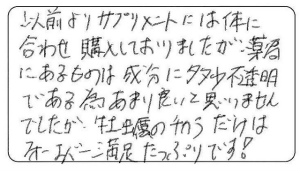 以前よりサプリメントには体に
合わせ購入しておりましたが、薬局
にあるものは成分に多少不透明
である為あまり良いと思いません
でしたが、牡蠣のチカラだけは
オーエバー満足たっぷりです!